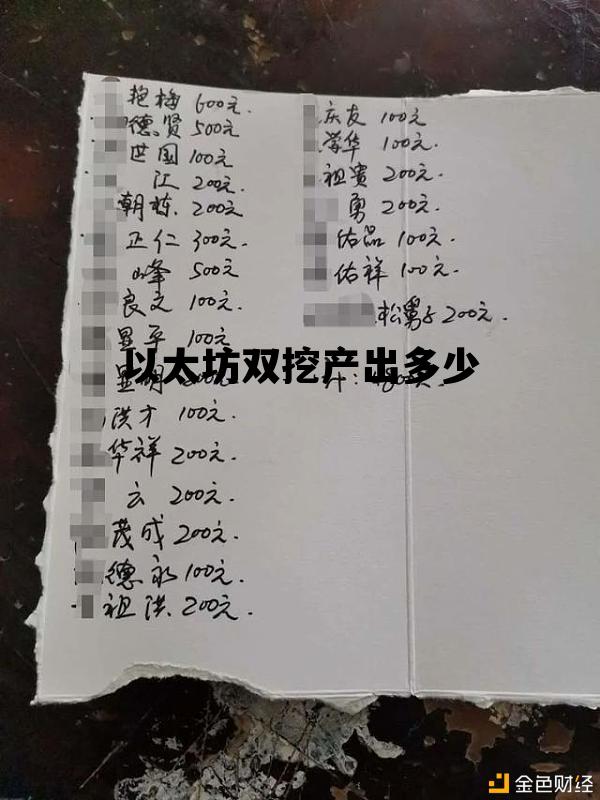 艳梅 600元.
德贤 500元
世国 100元
江 200元.
朝栋. 200元
正仁 300元.
峰 500元
良文 100元.
显平 100元
以太坊双挖产出多少
洪才 100元.
华祥 200元.
云 200元.
茂成 200元.
德永 100元.
祖洪 200元.
庆友 100元
荣华 100元.
祖贵 200元.
勇 200元.
佑品 100元.
佑祥 100元.
松舅子 200元.
金色财经